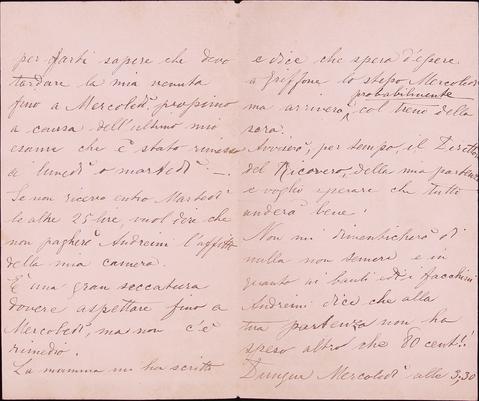 per farti sapere che devo
tardare la mia venuta
fino a Mercoledì prossimo
a causa dell'ultimo mio
esame che è stato rimesso
a lunedì o martedì —.
Se non ricevo entro Martedì
le altre 25 lire, vuol dire che
non pagherò Andreini l'affitto
della mia camera.
È una gran seccatura
dovere aspettare fino a
Mercoledì, ma non c'è
rimedio.
La mamma mi ha scritto
e dice che spera d'essere
a Griffone lo stesso Mercoledì
probabilmente
ma arriverà col treno della
sera.
Avviserò, per tempo, il Direttore
del Ricovero, della mia partenza
e voglio sperare che tutto
anderà bene!
Non mi dimenticherò di
nulla non temere e in
quanto ai bauli e facchini
Andreini dice che alla
tua partenza non ha
speso altro che 80 cent!
Dunque Mercoledì alle 3,30